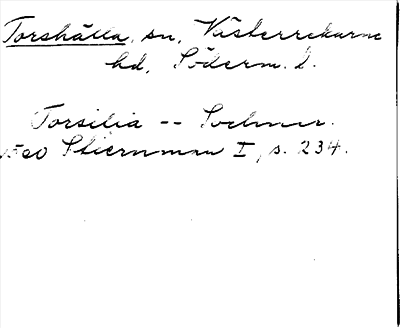 Torshälla, sn, Västerrekarne
hd, Söderm. l.
Torsilia -- Sudmer.
1500 Stiernman I, s. 234.